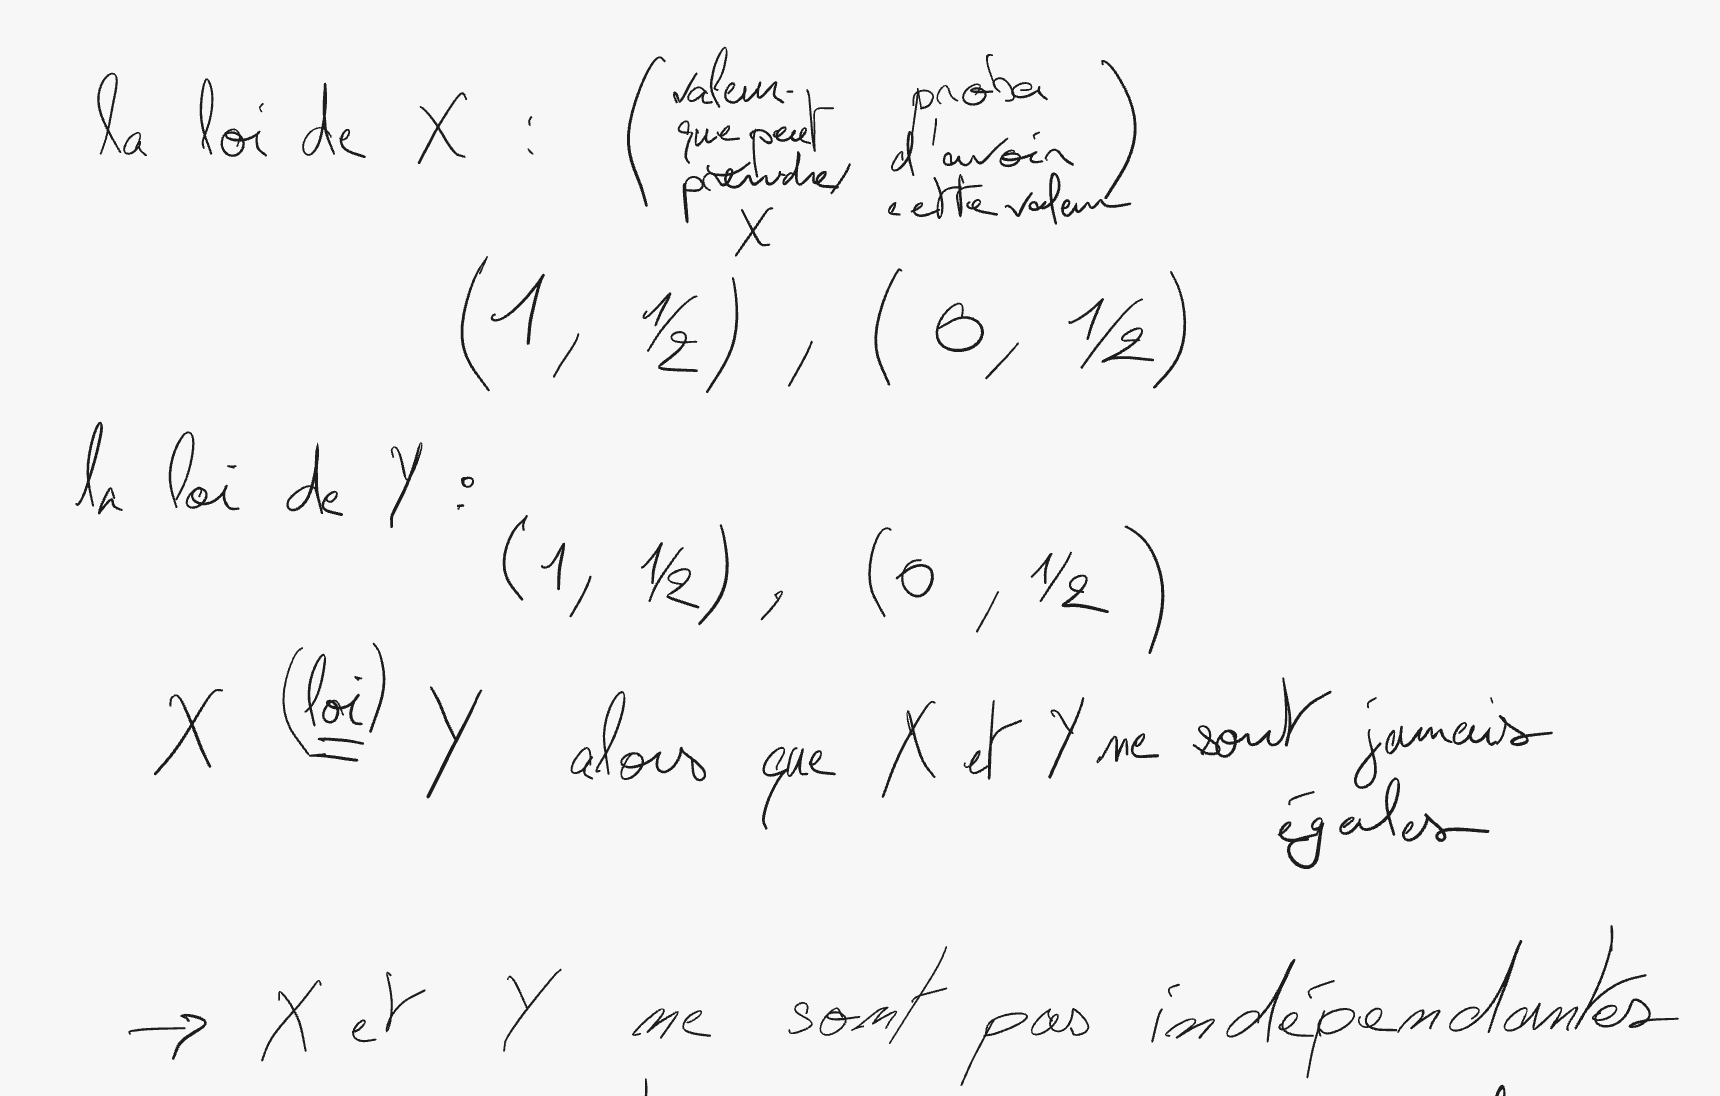 la loi de X : (valeur que peut prendre X   proba d'avoir cette valeur)
(1, 1/2), (0, 1/2)
la loi de Y :
(1, 1/2), (0, 1/2)
X (loi)= Y alors que X et Y ne sont jamais
égales
→ X et Y ne sont pas indépendantes